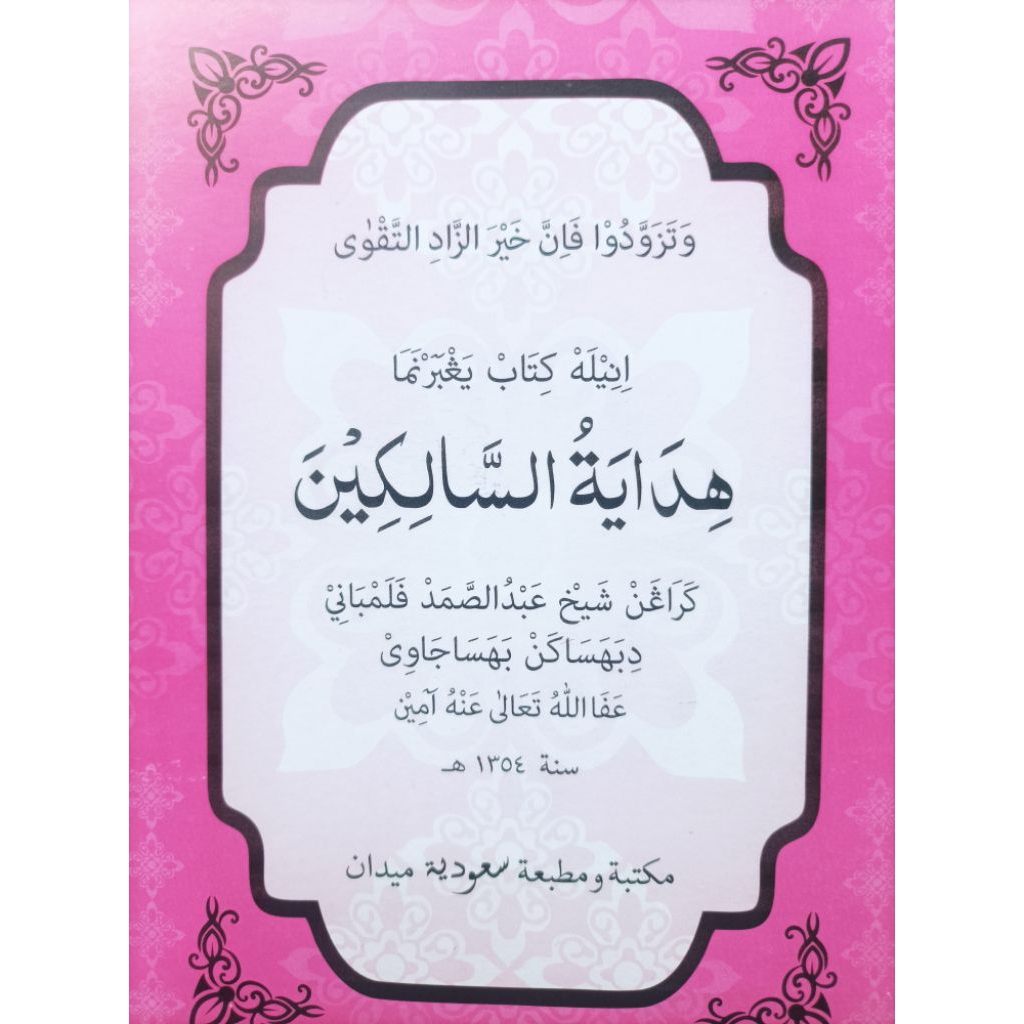 وَتَزَوَّدُوْا فَاِنَّ خَيْرَ الزَّادِ التَّقْوٰى
اِنِيْلَهْ كِتَابْ يَڠْبَرْنَمَا
هِدَايَةُ السَّالِكِيْنَ
كَرَاڠَنْ شَيْخ عَبْدُالصَّمَدْ فَلَمْبَانِيْ
دِبَهَسَاكَنْ بَهَسَاجَاوِيْ
عَفَااللّٰهُ تَعَالٰى عَنْهُ آمِيْن
سنة ١٣٥٤ هـ
مكتبة ومطبعة سعودية ميدان